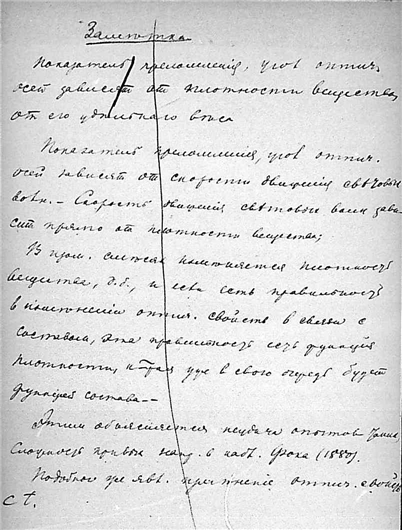 Заметка
Показатель преломленія, угол оптич.
осей зависят от плотности вещества,
от его удѣльнаго вѣса
Показатель преломленія, угол оптич.
осей зависят от скорости движенія свѣтовых
волн. – Скорость движенія свѣтовых волн зави-
сит прямо от плотности вещества;
В изом. смѣсях измѣняется плотность
вещества, и если есть правильность
в измѣненіи оптич. свойств в связи с
составом, эта правильность есть функція
плотности, к-рая уже в свою очередь будет
функціей состава –
Этим объясняется неудача опытов
Сложность кривых в наб. Фока (1880).
Подобное же явл. оптич. свойств